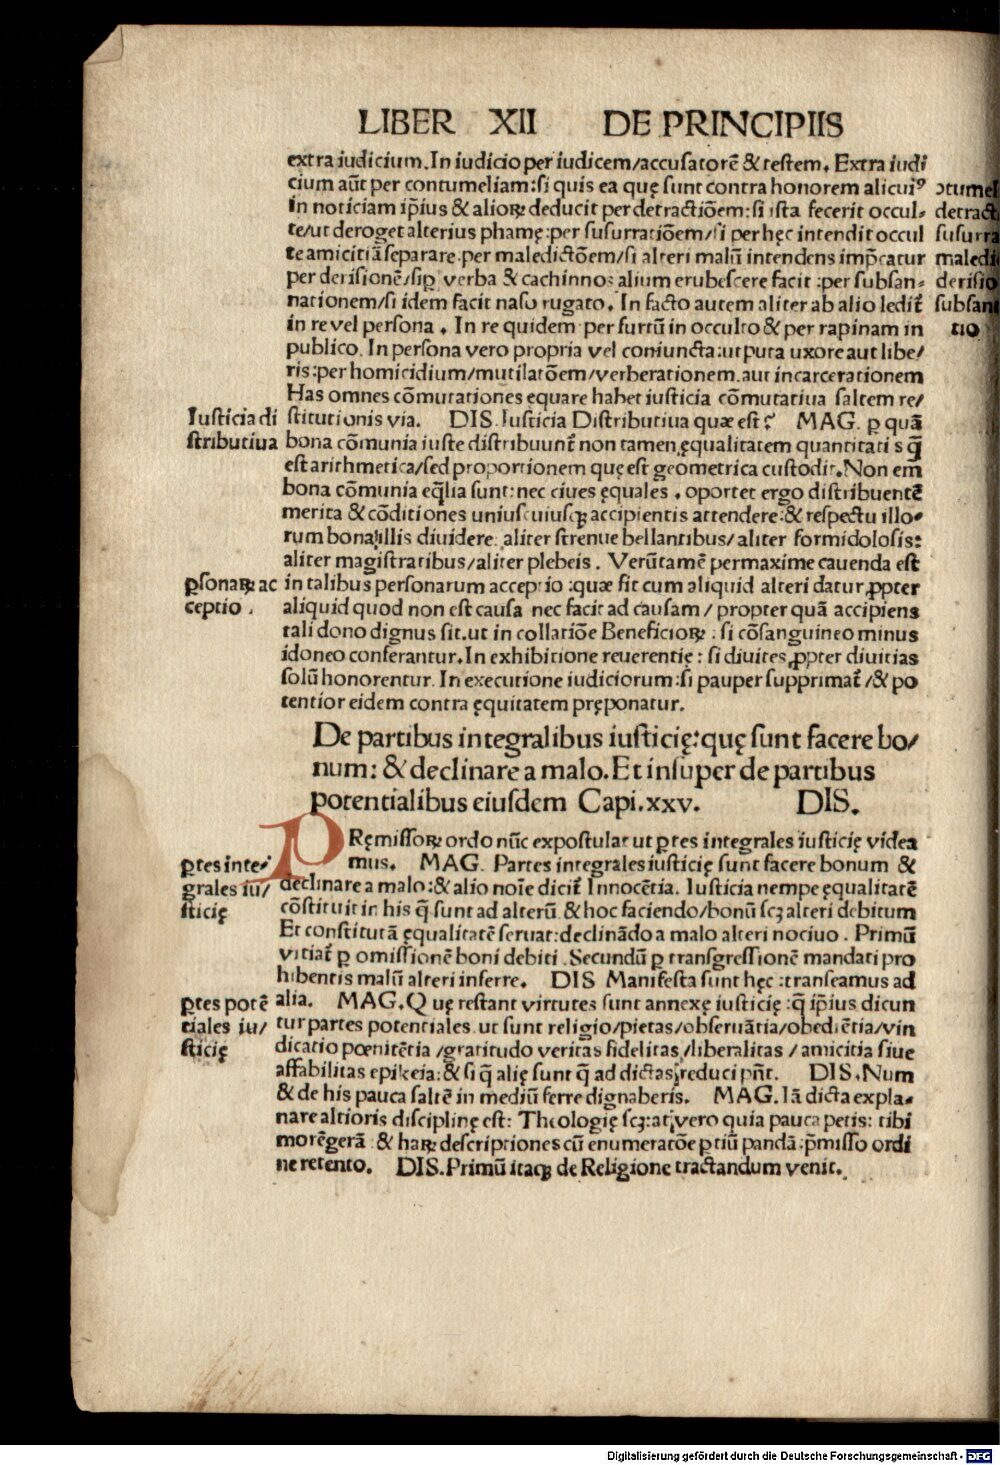 LIBER XII DE PRINCIPIIS
extra iudicium. In iudicio per iudicem/accusatorē & testem. Extra iudi
cium aūt per contumeliam: si quis ea quę sunt contra honorem alicuiꝰ
in noticiam ip̄ius & alioꝝ deducit per detractiōem: si ista fecerit occul⸗
te/ut deroget alterius phamę: per susurratiōem/si per hęc intendit occul
te amicitiā separare. per maledictōem/si alteri malū intendens imp̄catur
per derisionē/si ꝑ verba & cachinnos alium erubescere facit: per subsan⸗
nationem/si idem facit naso rugato. In facto autem aliter ab alio ledit᷑
in re vel persona. In re quidem per furtū in occulto & per rapinam in
publico. In persona vero propria vel coniuncta: utputa uxore aut libe/
ris: per homicidium/mutilatōem/verberationem. aut incarcerationem
Has omnes cōmutationes equare habet iusticia cōmutatiua saltem re/
stitutionis via. DIS. Iusticia Distributiua quæ est? MAG. ꝑ quā
bona cōmunia iuste distribuunt᷑ non tamen ęqualitatem quantitatis q̄
est arithmetica/sed proportionem quę est geometrica custodit. Non em
bona cōmunia eq̄lia sunt: nec ciues ęquales. oportet ergo distribuentē
merita & cōditiones uniuscuiusqꝫ accipientis attendere: & respectu illo⸗
rum bona illis diuidere. aliter strenue bellantibus/aliter formidolosis:
aliter magistratibus/aliter plebeis. Verūtamē permaxime cauenda est
in talibus personarum acceptio: quæ fit cum aliquid alteri datur ꝓpter
aliquid quod non est causa nec facit ad causam/propter quā accipiens
tali dono dignus sit. ut in collatiōe Beneficioꝝ: si cōsanguineo minus
idoneo conferantur. In exhibitione reuerentię: si diuites ꝓpter diuitias
solū honorentur. In executione iudiciorum: si pauper supprimat᷑/& po
tentior eidem contra ęquitatem pręponatur.
ↄtumel
detracti
susurra
maledi
derisio
subsan
tio
Iusticia di
stributiua
ꝑsonaꝝ ac
ceptio.
De partibus integralibus iusticię: quę sunt facere bo/
num: & declinare a malo. Et insuper de partibus
potentialibus eiusdem Capi. xxv. DIS.
PRęmissoꝝ ordo nūc expostulat ut ꝑtes integrales iusticię videa
mus. MAG. Partes integrales iusticię sunt facere bonum &
declinare a malo: & alio noīe dicit᷑ Innocētia. Iusticia nempe ęqualitatē
cōstituit in his q̄ sunt ad alterū. & hoc faciendo/bonū scꝫ alteri debitum
Et constitutā ęqualitatē seruat: declinādo a malo alteri nociuo. Primū
vitiat᷑ ꝑ omissionē boni debiti. Secundū ꝑ transgressionē mandati pro
hibentis malū alteri inferre. DIS Manifesta sunt hęc: transeamus ad
alia. MAG. Quę restant virtutes sunt annexę iusticię: q̄ ip̄ius dicun
tur partes potentiales. ut sunt religio/pietas/obseruātia/obediētia/vin
dicatio pœnitētia/gratitudo veritas fidelitas/liberalitas/amicitia siue
affabilitas epikeia: & si q̄ alię sunt q̄ ad dictas reduci pn̄t. DIS. Num
& de his pauca saltē in mediū ferre dignaberis. MAG. Iā dicta expla⸗
nare altioris disciplinę est: Theologię scꝫ: at vero quia pauca petis: tibi
morēgerā & haꝝ descriptiones cū enumeratōe ꝑtiū pandā: p̄misso ordi
ne retento. DIS. Primū itaqꝫ de Religione tractandum venit.
ꝑtes inte⸗
grales iu/
sticię
ꝑtes potē
tiales iu/
sticię
Digitalisierung gefördert durch die Deutsche Forschungsgemeinschaft - DFG